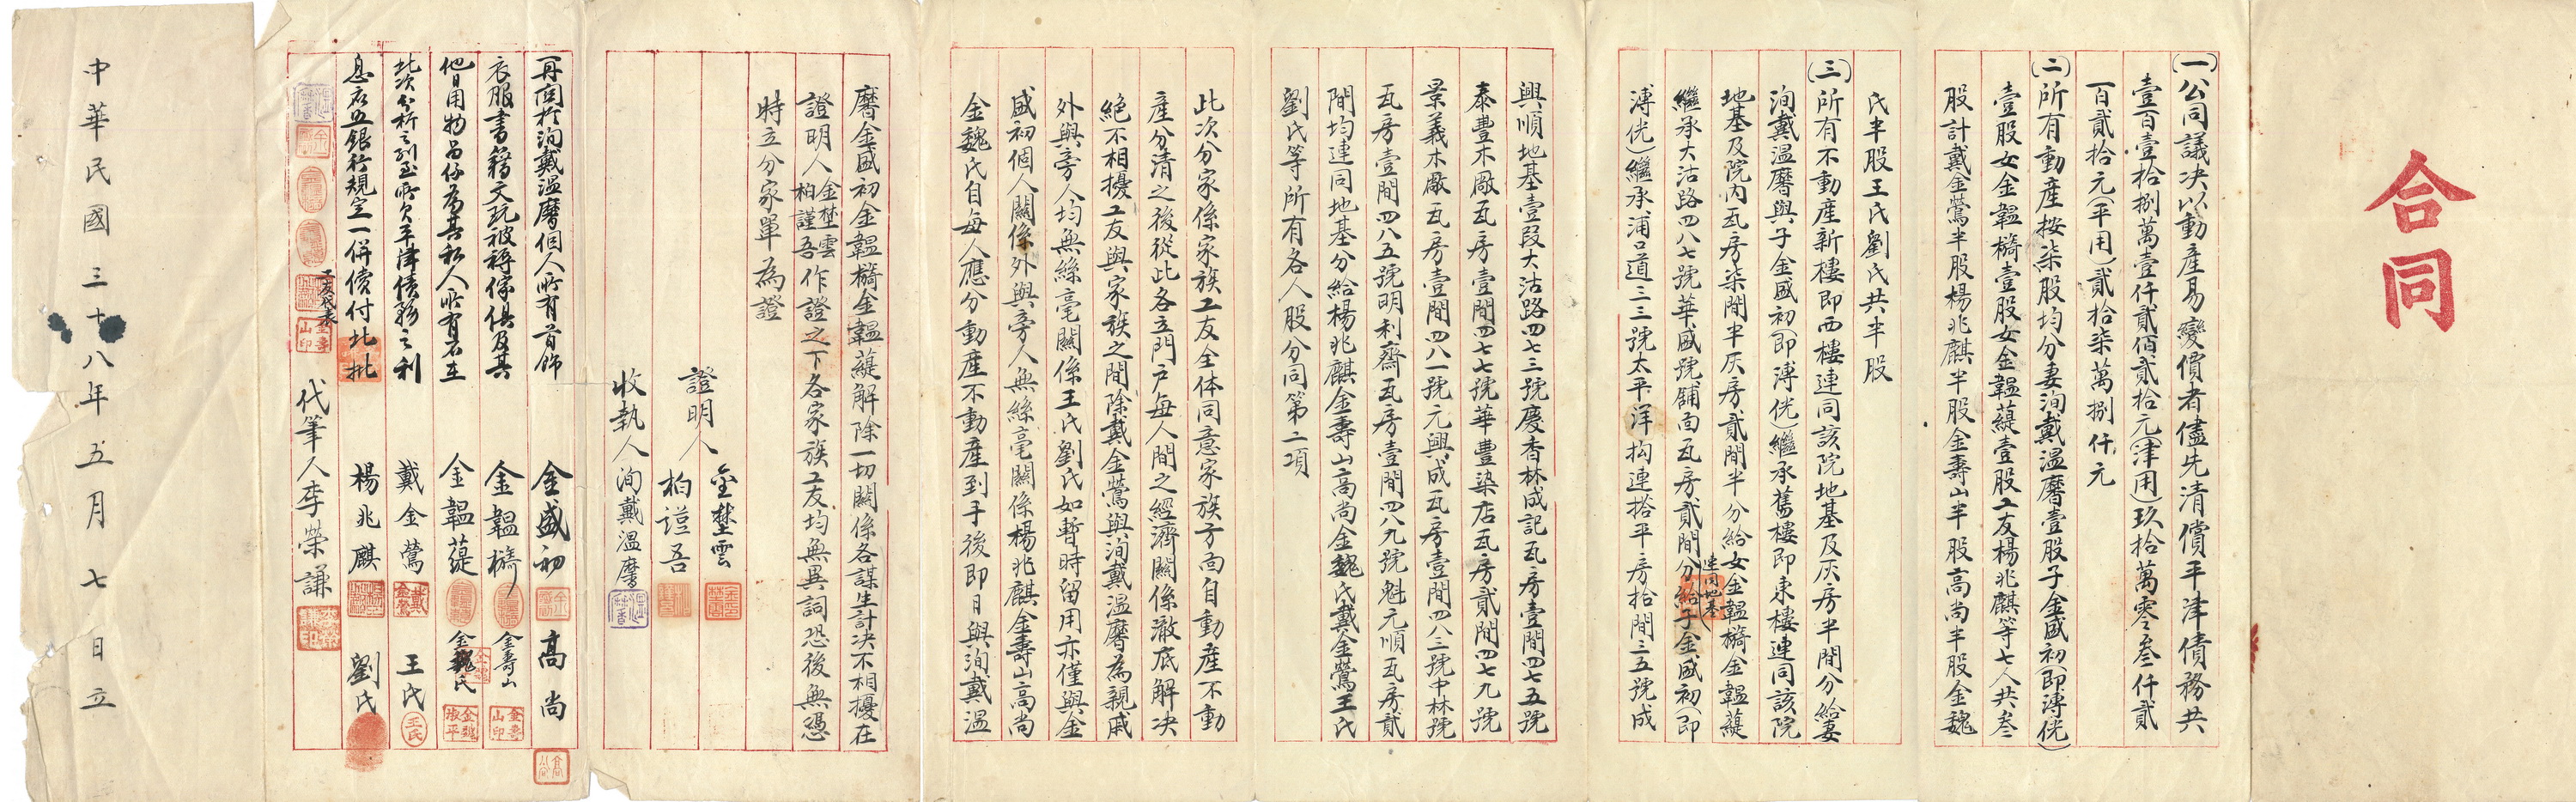 合同
(一)公同議決以動產易變價者儘先清償平津債務共
壹百壹拾捌萬壹仟貳佰貳拾元(津用)玖拾萬零叁仟貳
百貳拾元(平用)貳拾柒萬捌仟元
(二)所有動產按柒股均分妻洵戴溫麿壹股子金盛初(即溥侊)
壹股女金韞檹壹股女金韞蕤壹股工友楊兆麒等七人共叁
股計戴金鶯半股楊兆麒半股金壽山半股高尚半股金魏
氏半股王氏劉氏共半股
(三)所有不動產新樓即西樓連同該院地基及灰房半間分給妻
洵戴溫麿與子金盛初(即溥侊)繼承舊樓即東樓連同該院
地基及院內瓦房柒間半灰房貳間半分給女金韞檹金韞蕤
繼承大沽路四八七號華盛號舖面瓦房貳間連同地基分給子金盛初(即
溥侊)繼承浦口道三三號太平洋拘連搭平房拾間三五號成
興順地基壹段大沽路四七三號慶香林成記瓦房壹間四七五號
泰豐木廠瓦房壹間四七七號華豐染店瓦房貳間四七九號
景義木廠瓦房壹間四八一號元興成瓦房壹間四八三號中林號
瓦房壹間四八五號明利齋瓦房壹間四八九號魁元順瓦房貳
間均連同地基分給楊兆麒金壽山高尚金魏氏戴金鶯王氏
劉氏等所有各人股分同第二項
此次分家係家族工友全体同意家族方面自動產不動
產分清之後從此各立門戶每人間之經濟關係澈底解決
絕不相擾工友與家族之間除戴金鶯與洵戴溫麿為親戚
外與旁人均無絲毫關係王氏劉氏如暫時留用亦僅與金
盛初個人關係外與旁人無絲毫關係楊兆麒金壽山高尚
金魏氏自每人應分動產不動產到手後即日與洵戴溫
麿金盛初金韞檹金韞蕤解除一切關係各謀生計決不相擾在
證明人金楚雲柏謹吾作證之下各家族工友均無異詞恐後無憑
特立分家單為證
證明人 金楚雲
柏謹吾
收執人 洵戴溫麿
再關於洵戴溫麿個人所有首飾
衣服書籍文玩被褥傢俱及其
他日用物品仔為其私人所有不在
此次分析之列至所欠平津債務之利
息應照銀行規定一併償付此批
金盛初 高尚
金韞檹 金壽山
金韞蕤 金魏氏
戴金鶯 王氏
楊兆麒 劉氏
工友代表
代筆人 李榮謙
李榮謙印
中華民國三十八年五月七日立